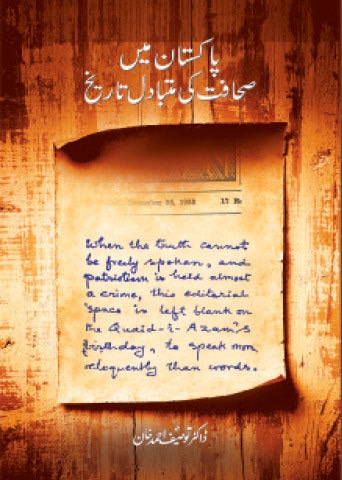 پاکستان میں
صحافت کی متبادل تاریخ
1982
17 Ra
When the truth cannot
be freely spoken, and
patriotism is held almost
a crime, this editorial
space is left blank on
the Quaid-i-Azam's
birthday, to speak more
eloquently than words.
ڈاکٹر توصیف احمد خان